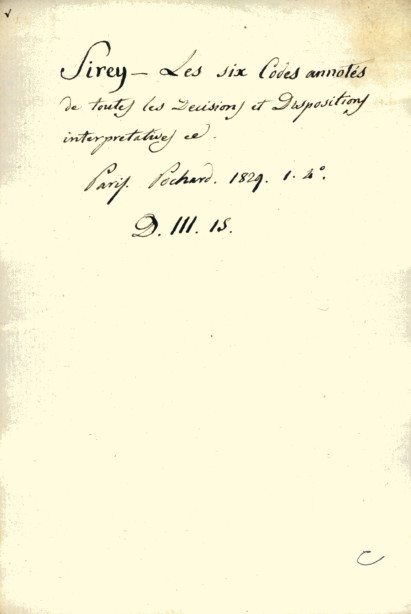 Sirey — Les six Codes annotés
de toutes les Decisions et Dispositions
interpretatives
Paris. Pochard. 1829. 1. 4°.
D. III. 15.
C